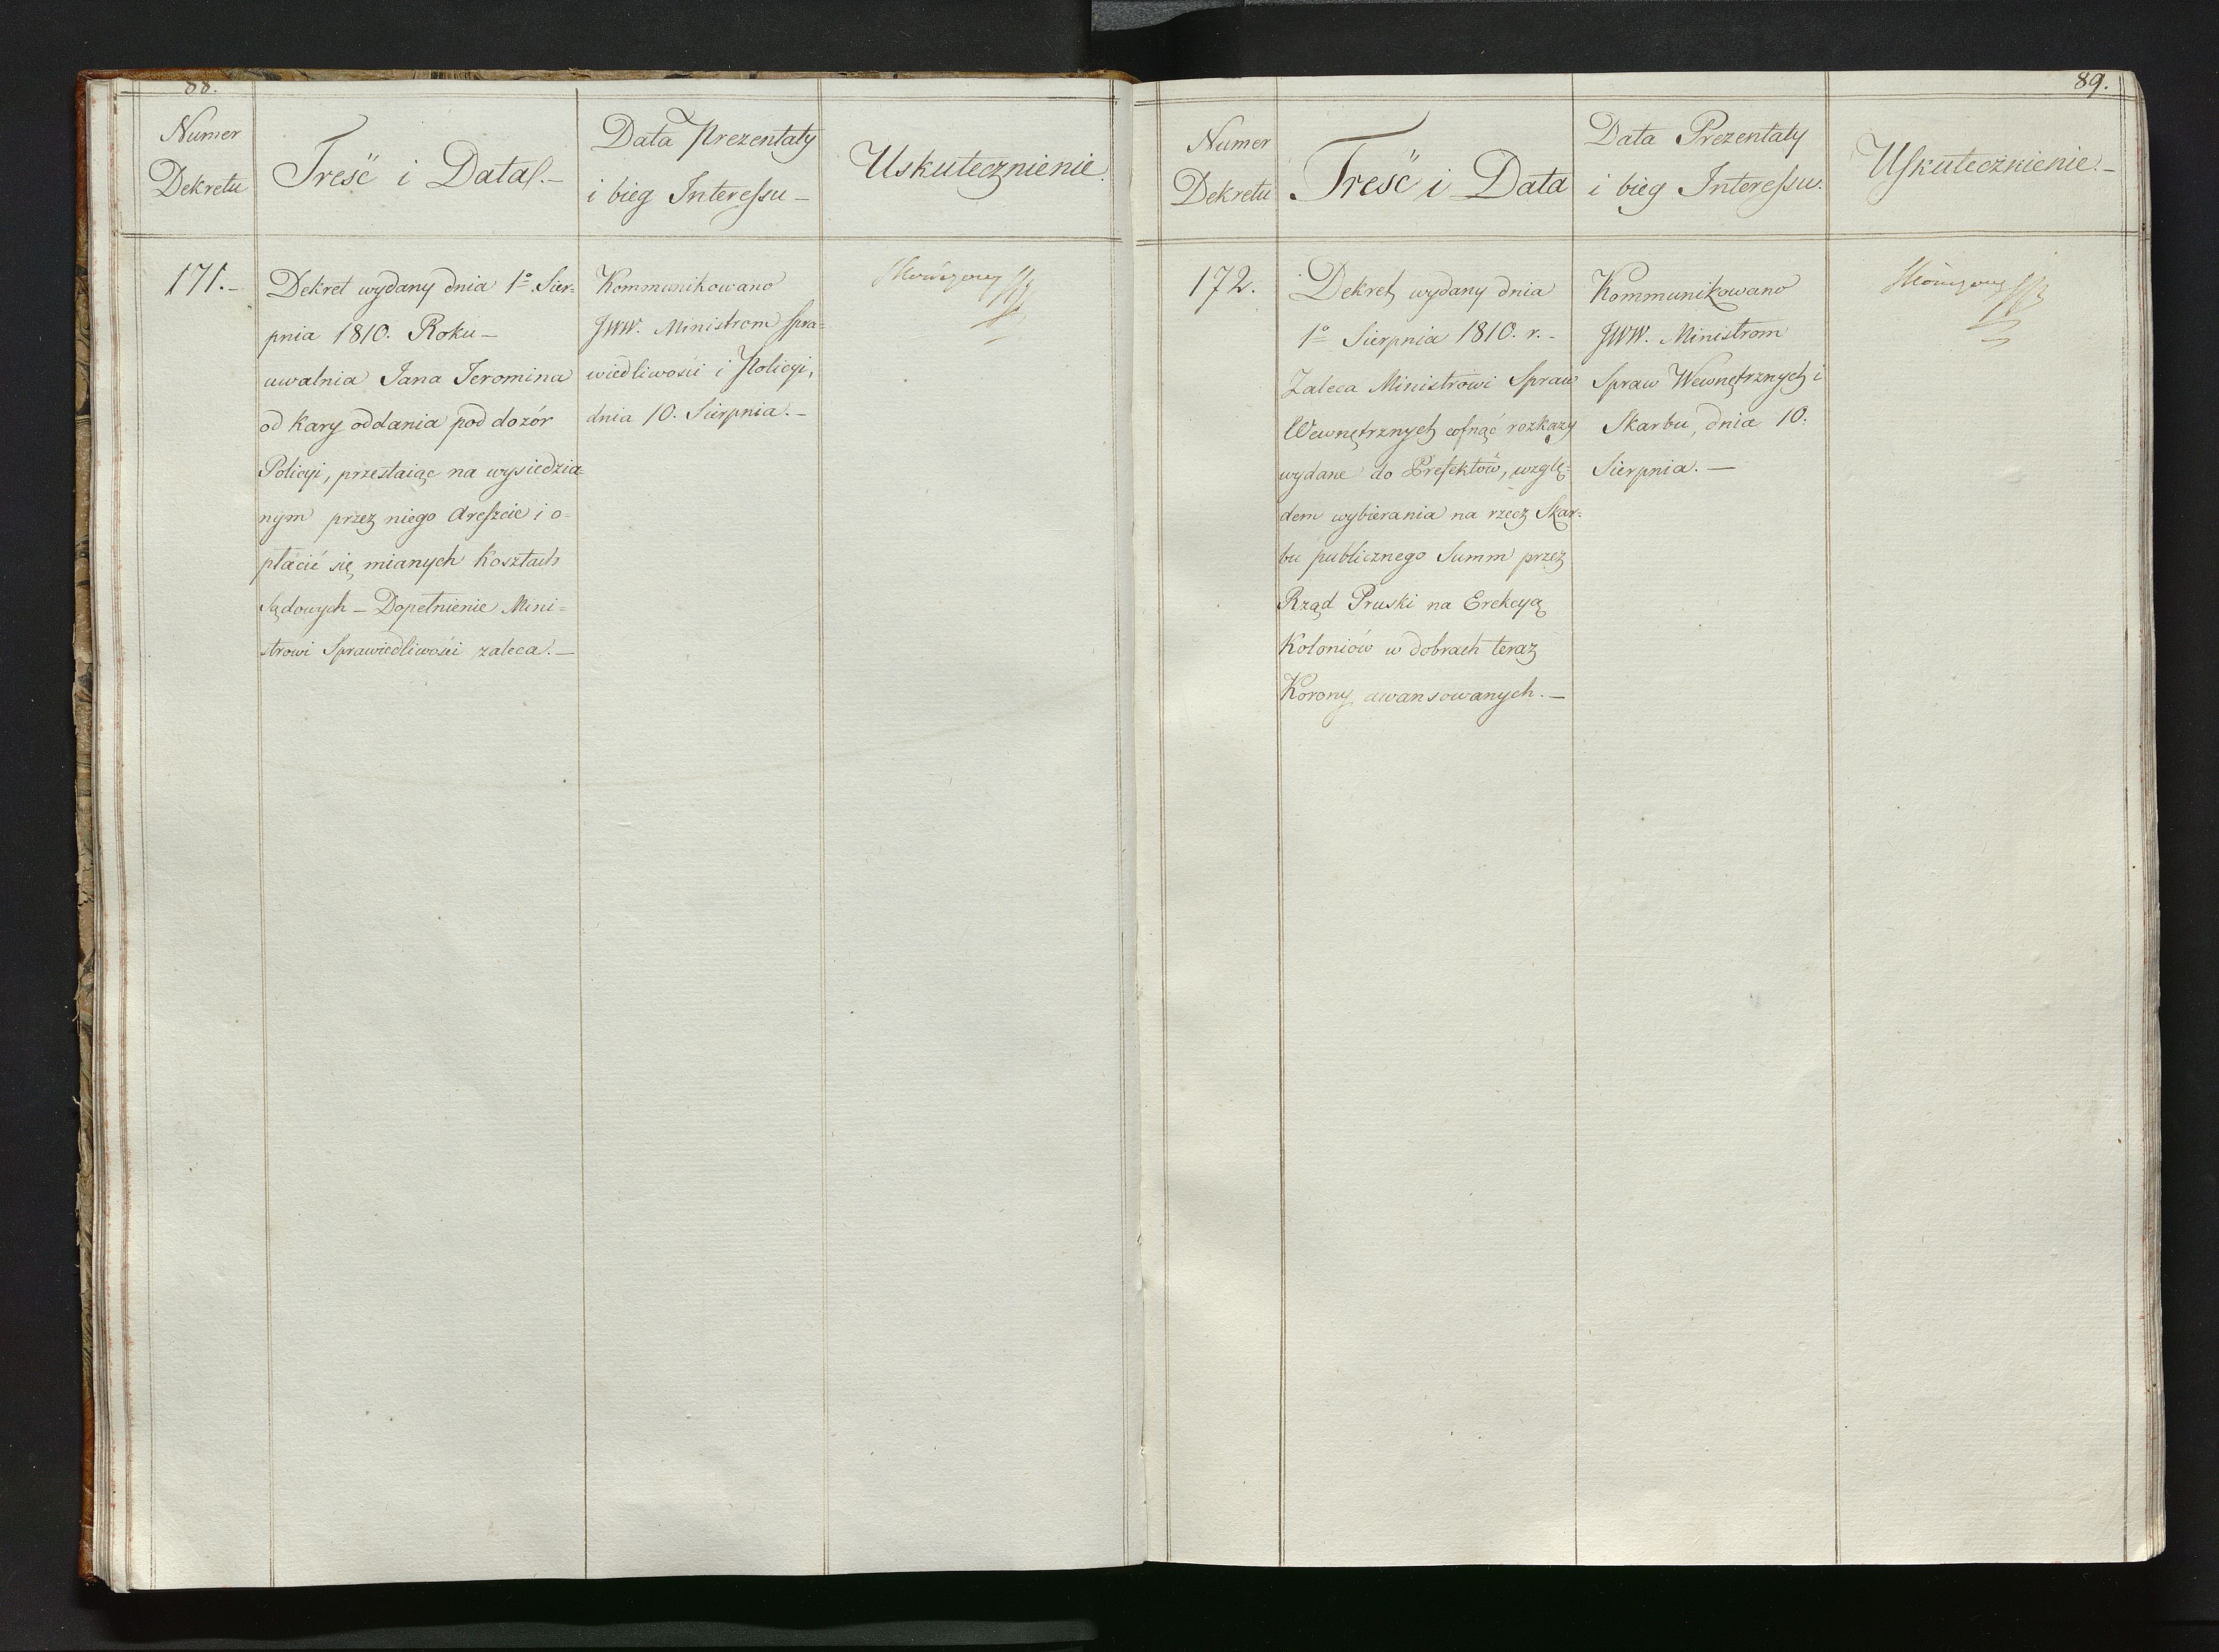 88.
Numer
Dekretu
Treść i Data.-
Data Prezentaty
i bieg Interessu -
Uskutecznienie.
171.-
Dekret wydany dnia 1º Sier=
pnia 1810. Roku -
uwalnia Jana Jeromina
od kary oddania pod dozór
Policyi, przestaiąc na wysiedzia=
nym przez niego Areszcie i o-
płacić się mianych kosztach
sądowych - Dopełnienie Mini=
strowi Sprawiedliwości zaleca. -
Kommunikowano
JWW. Ministrom Spra=
wiedliwości i Policyi,
dnia 10. Sierpnia. -
Skończony
89.
Numer
Dekretu
Treść i Data
Data Prezentaty
i bieg Interessu.
Uskutecznienie. -
172.
Dekret wydany dnia
1º Sierpnia 1810. r. -
Zaleca Ministrowi Spraw
Wewnętrznych cofnąć rozkazy
wydane do Prefektów, wzglę=
dem wybierania na rzecz Skar=
bu publicznego Summ przez
Rząd Pruski na Erekcyą
Koloniów w dobrach teraz
Korony awansowanych. -
Kommunikowano
JWW. Ministrom
Spraw Wewnętrznych i
Skarbu, dnia 10.
Sierpnia. -
Skończony